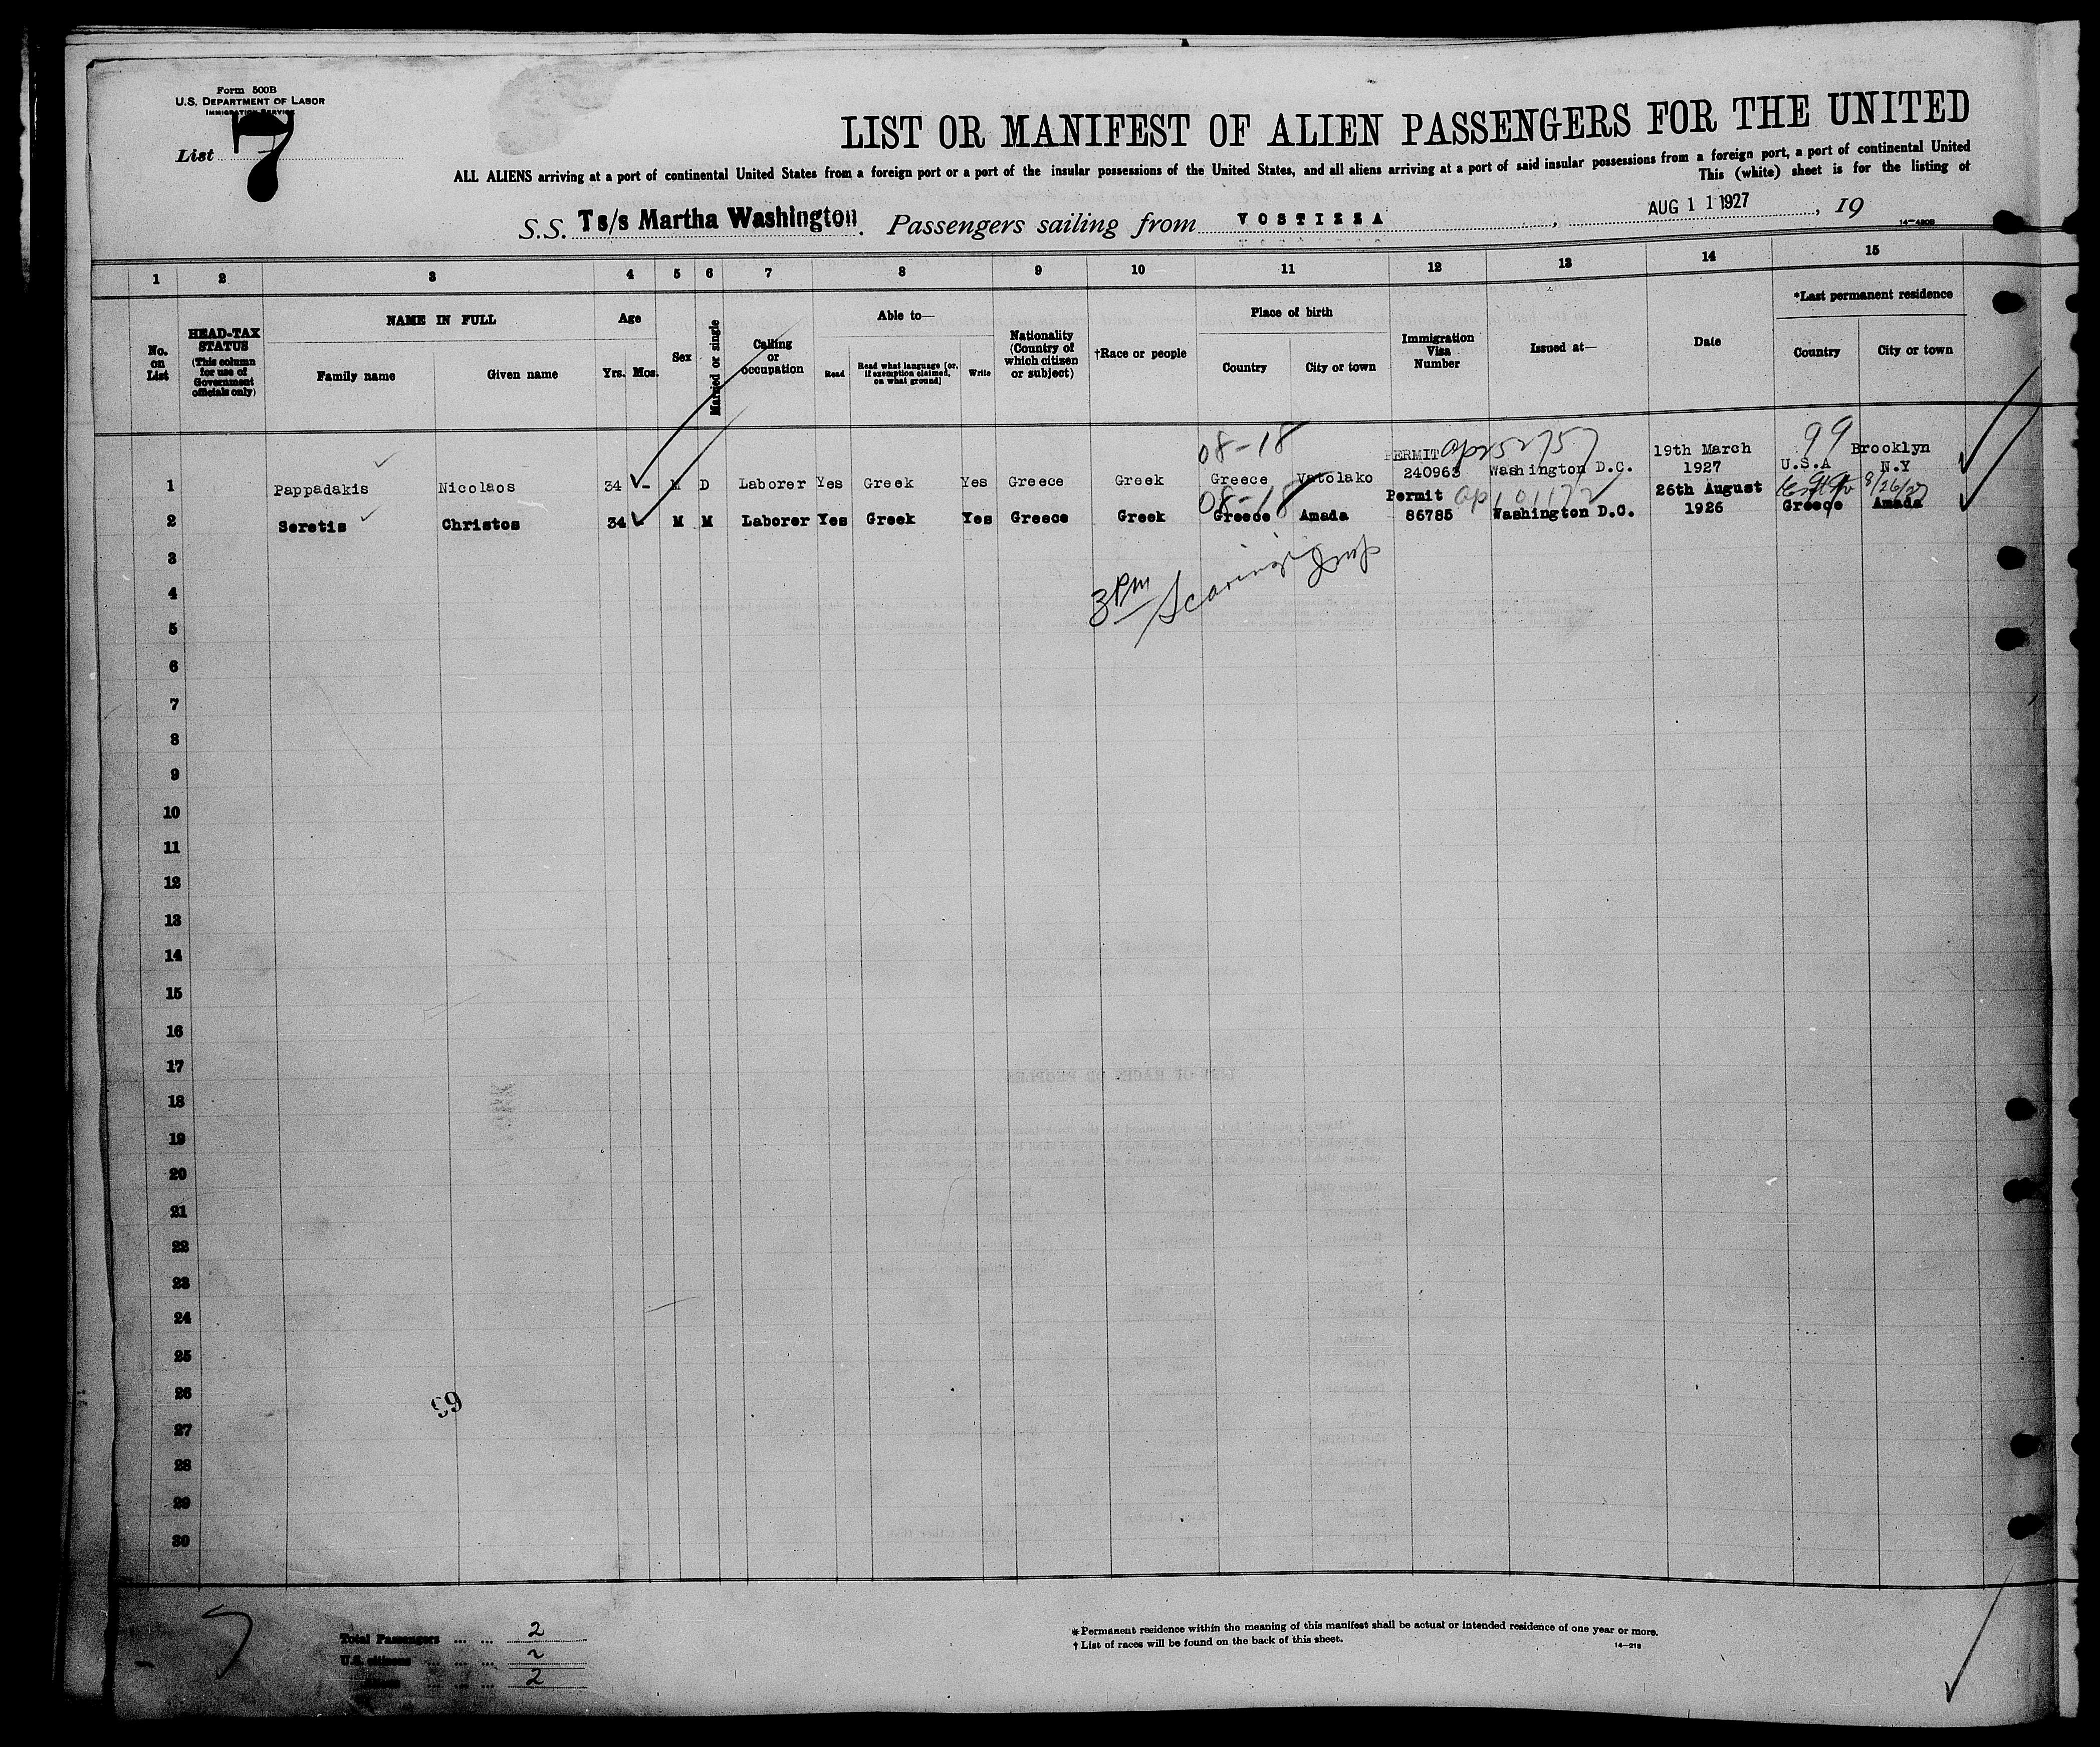 Form 500B
U.S. DEPARTMENT OF LABOR
IMMIGRATION SERVICE
List 7
LIST OR MANIFEST OF ALIEN PASSENGERS FOR THE UNITED
ALL ALIENS arriving at a port of continental United States from a foreign port or a port of the insular possessions of the United States, and all aliens arriving at a port of said insular possessions from a foreign port, a port of continental United
This (white) sheet is for the listing of
S.S. Ts/s Martha Washington. Passengers sailing from VOSTIZZA, AUG 11 1927, 19
14—420B
1 2 3 4 5 6 7 8 9 10 11 12 13 14 15
No. on List
HEAD-TAX STATUS (This column for use of Government officials only)
NAME IN FULL
Family name Given name
Age
Yrs. Mos.
Sex
Married or single
Calling or occupation
Able to—
Read Read what language [or, if exemption claimed, on what ground] Write
Nationality (Country of which citizen or subject)
†Race or people
Place of birth
Country City or town
Immigration Visa Number
Issued at—
Date
*Last permanent residence
Country City or town
08-18 PERMIT 52757 19th March 99 Brooklyn
1 Pappadakis Nicolaos 34 - M D Laborer Yes Greek Yes Greece Greek Greece Vatolako 240963 Washington D.C. 1927 U.S.A N.Y
08-18 Permit 101172 26th August 8/26/27
2 Seretis Christos 34 - M M Laborer Yes Greek Yes Greece Greek Greece Amada 86785 Washington D.C. 1926 Greece Amada
3 PM
3
4
5
6
7
8
9
10
11
12
13
14
15
16
17
18
19
20
21
22
23
24
25
26
27
28
29
30
Total Passengers ... ... 2
U.S. citizens ... ... ... 2
2
* Permanent residence within the meaning of this manifest shall be actual or intended residence of one year or more.
† List of races will be found on the back of this sheet.
14—213